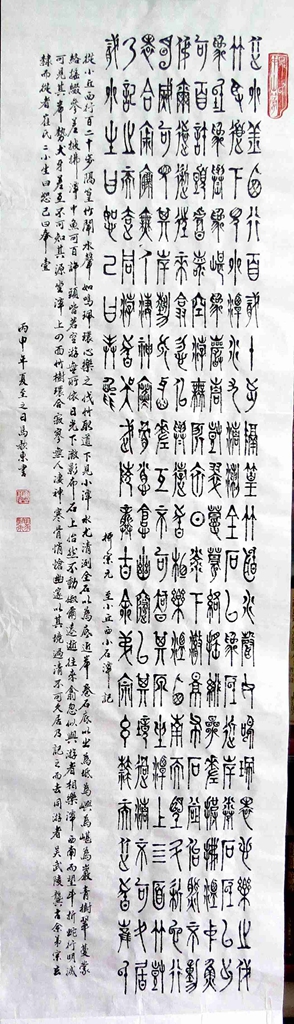 從小丘西行百二十步隔篁竹聞水聲如鳴珮環心樂之伐
竹取道下見小潭水尤清洌全石以為底近岸卷石底以出
為坻為嶼為嵁為巖青樹翠蔓蒙絡搖綴參差披拂潭中魚
可百許頭皆若空游無所依日光下澈影布石上怡然不動
俶爾遠逝往來翕忽似與游者相樂潭西南而望斗折蛇行
明滅可見其岸勢犬牙差互不可知其源坐潭上四面竹樹
環合寂寥無人淒神寒骨悄愴幽邃以其境過清不可久居
乃記之而去同游者吳武陵龔古余弟宗玄隸而從者崔氏
二小生曰恕己曰奉壹
柳宗元 至小丘西小石潭記
從小丘西行百二十步隔篁竹聞水聲如鳴珮環心樂之伐竹取道下見小潭水尤清洌全石以為底近岸卷石底以出為坻為嶼為嵁為巖青樹翠蔓蒙
絡搖綴參差披拂潭中魚可百許頭皆若空游無所依日光下澈影布石上怡然不動俶爾遠逝往來翕忽似與游者相樂潭西南而望斗折蛇行明滅
可見其岸勢犬牙差互不可知其源坐潭上四面竹樹環合寂寥無人淒神寒骨悄愴幽邃以其境過清不可久居乃記之而去同游者吳武陵龔古余弟宗玄
隸而從者崔氏二小生曰恕己曰奉壹
丙申年夏至之日馬東書